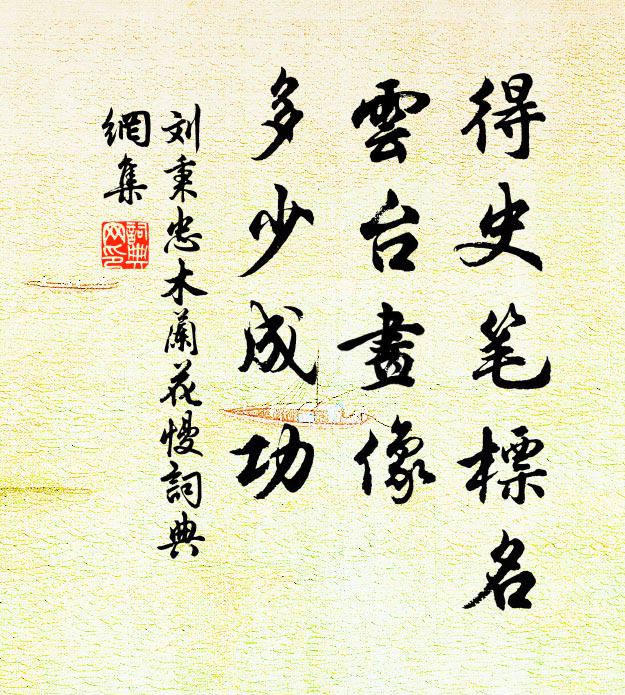 得史笔標名
雲台畫像
多少成功
刘秉忠木蘭花慢詞典
網集
詞典
网印